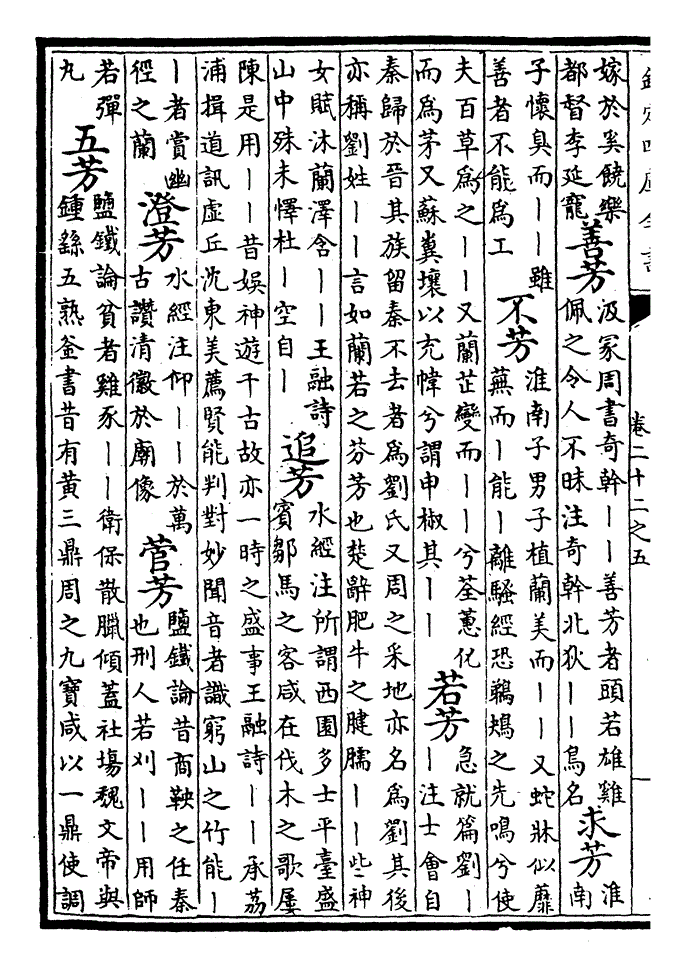 欽定四庫全書
卷二十二之五
嫁於奚饒樂
都督李延寵
善芳
汲冢周書奇幹丨丨善芳者頭若雄雞
佩之令人不昧注奇幹北狄丨丨鳥名
求芳
淮
南
子懷臭而丨丨雖
善者不能爲工
不芳
淮南子男子植蘭美而丨丨又蛇牀似蘼
蕪而丨能丨離騷經恐鵜鴂之先鳴兮使
夫百草爲之丨丨又蘭芷變而丨丨兮荃蕙化
而爲茅又蘇糞壤以充幃兮謂申椒其丨丨
若芳
急就篇劉丨
丨注士會自
秦歸於晉其族留秦不去者爲劉氏又周之采地亦名爲劉其後
亦稱劉姓丨丨言如蘭若之芬芳也楚辭肥牛之腱臑丨丨些神
女賦沐蘭澤含丨丨王融詩
山中殊未懌杜丨空自丨
追芳
水經注所謂西園多士平臺盛
賓鄒馬之客咸在伐木之歌屢
陳是用丨丨昔娛神遊千古故亦一時之盛事王融詩丨丨承荔
浦揖道訊虛丘沈東美薦賢能判對妙聞音者識窮山之竹能丨
丨者賞幽
徑之蘭
澄芳
水經注仰丨丨於萬
古讚清徽於廟像
菅芳
鹽鐵論昔商鞅之任秦
也刑人若刈丨丨用師
若彈
丸
五芳
鹽鐵論貧者雞豕丨丨衛保散臘傾蓋社場魏文帝與
鍾繇五熟釜書昔有黄三鼎周之九寶咸以一鼎使調